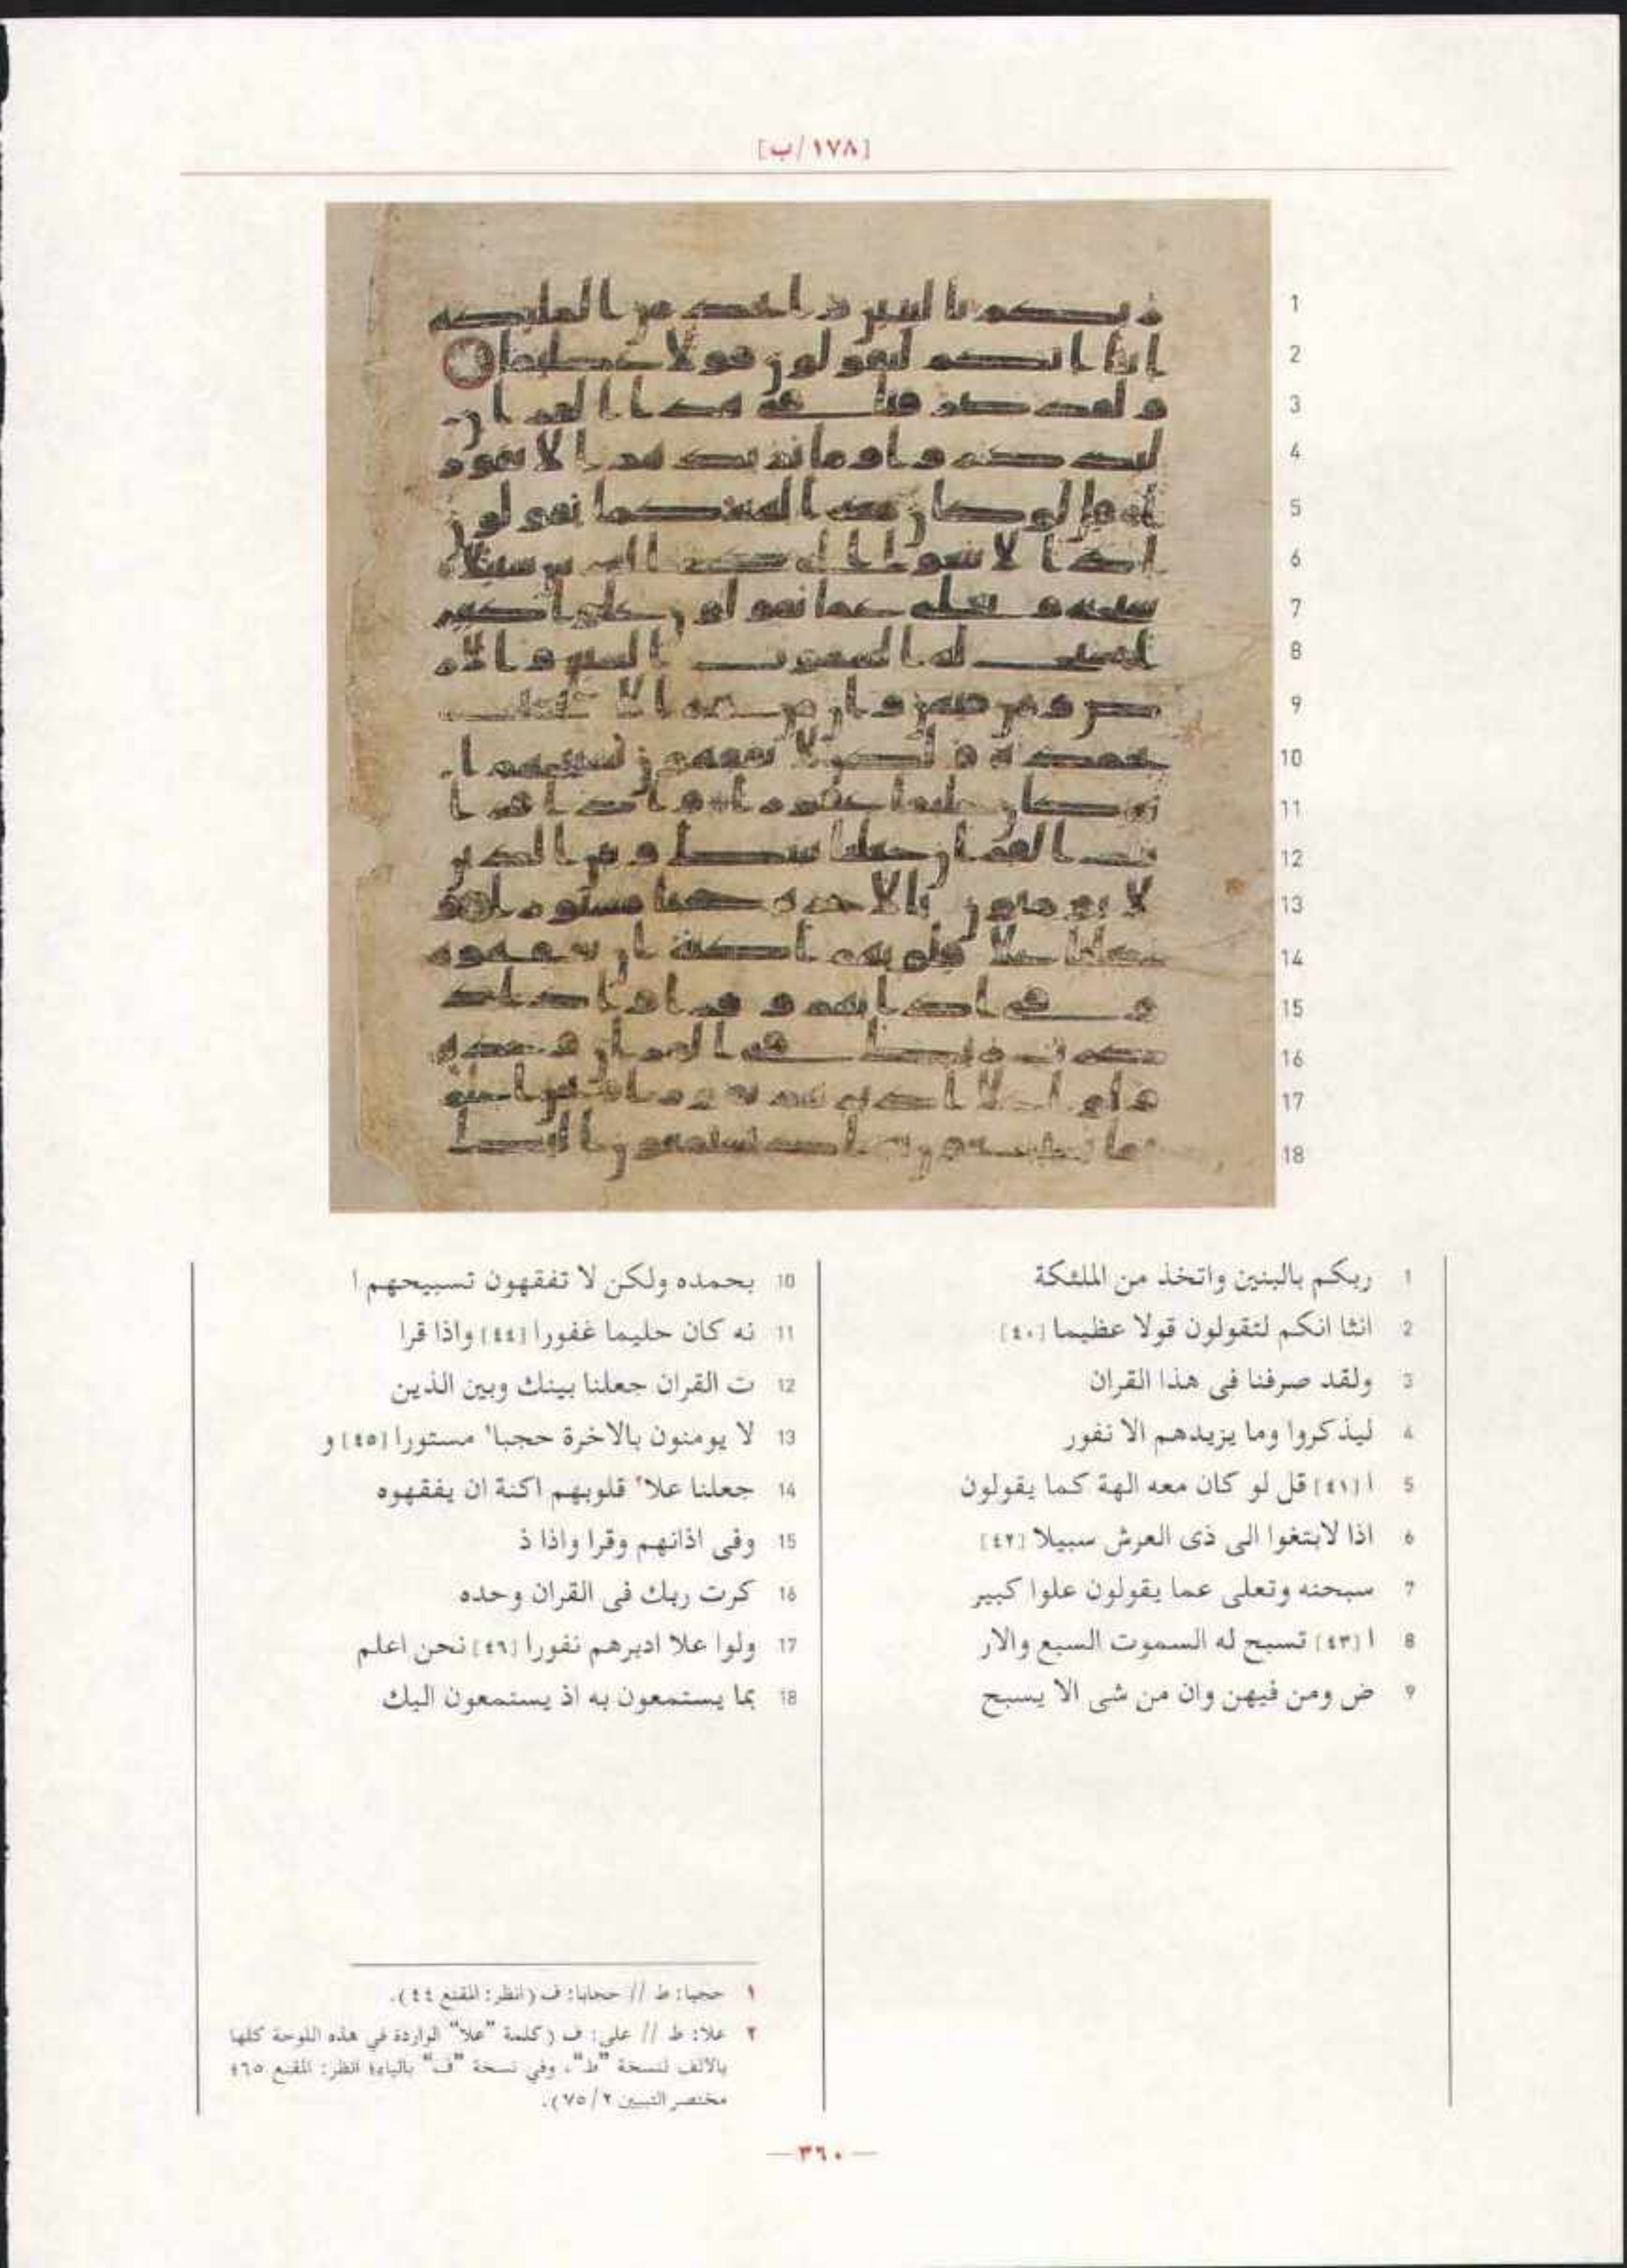 [١٧٨/ب]
1 ربكم بالبنين واتخذ من الملئكة
2 انثا انكم لتقولون قولا عظيما [٤٠]
3 ولقد صرفنا فى هذا القران
4 ليذكروا وما يزيدهم الا نفور
5 ا [٤١] قل لو كان معه الهة كما يقولون
6 اذا لابتغوا الى ذى العرش سبيلا [٤٢]
7 سبحنه وتعلى عما يقولون علوا كبير
8 ا [٤٣] تسبح له السموت السبع والار
9 ض ومن فيهن وان من شى الا يسبح
10 بحمده ولكن لا تفقهون تسبيحهم ا
11 نه كان حليما غفورا [٤٤] واذا قرا
12 ت القران جعلنا بينك وبين الذين
13 لا يومنون بالاخرة حجبا١ مستورا [٤٥] و
14 جعلنا علا٢ قلوبهم اكنة ان يفقهوه
15 وفى اذانهم وقرا واذا ذ
16 كرت ربك فى القران وحده
17 ولوا علا ادبرهم نفورا [٤٦] نحن اعلم
18 بما يستمعون به اذ يستمعون اليك
١ حجبا: ط // حجابا: ف (انظر: المقنع ٤٤).
٢ علا: ط // على: ف (كلمة "علا" الواردة في هذه اللوحة كلها
بالألف لنسخة "ط"، وفي نسخة "ف" بالياء؛ انظر: المقنع ٦٥؛
مختصر التبيين ٢/ ٧٥).
— ٣٦٠ —